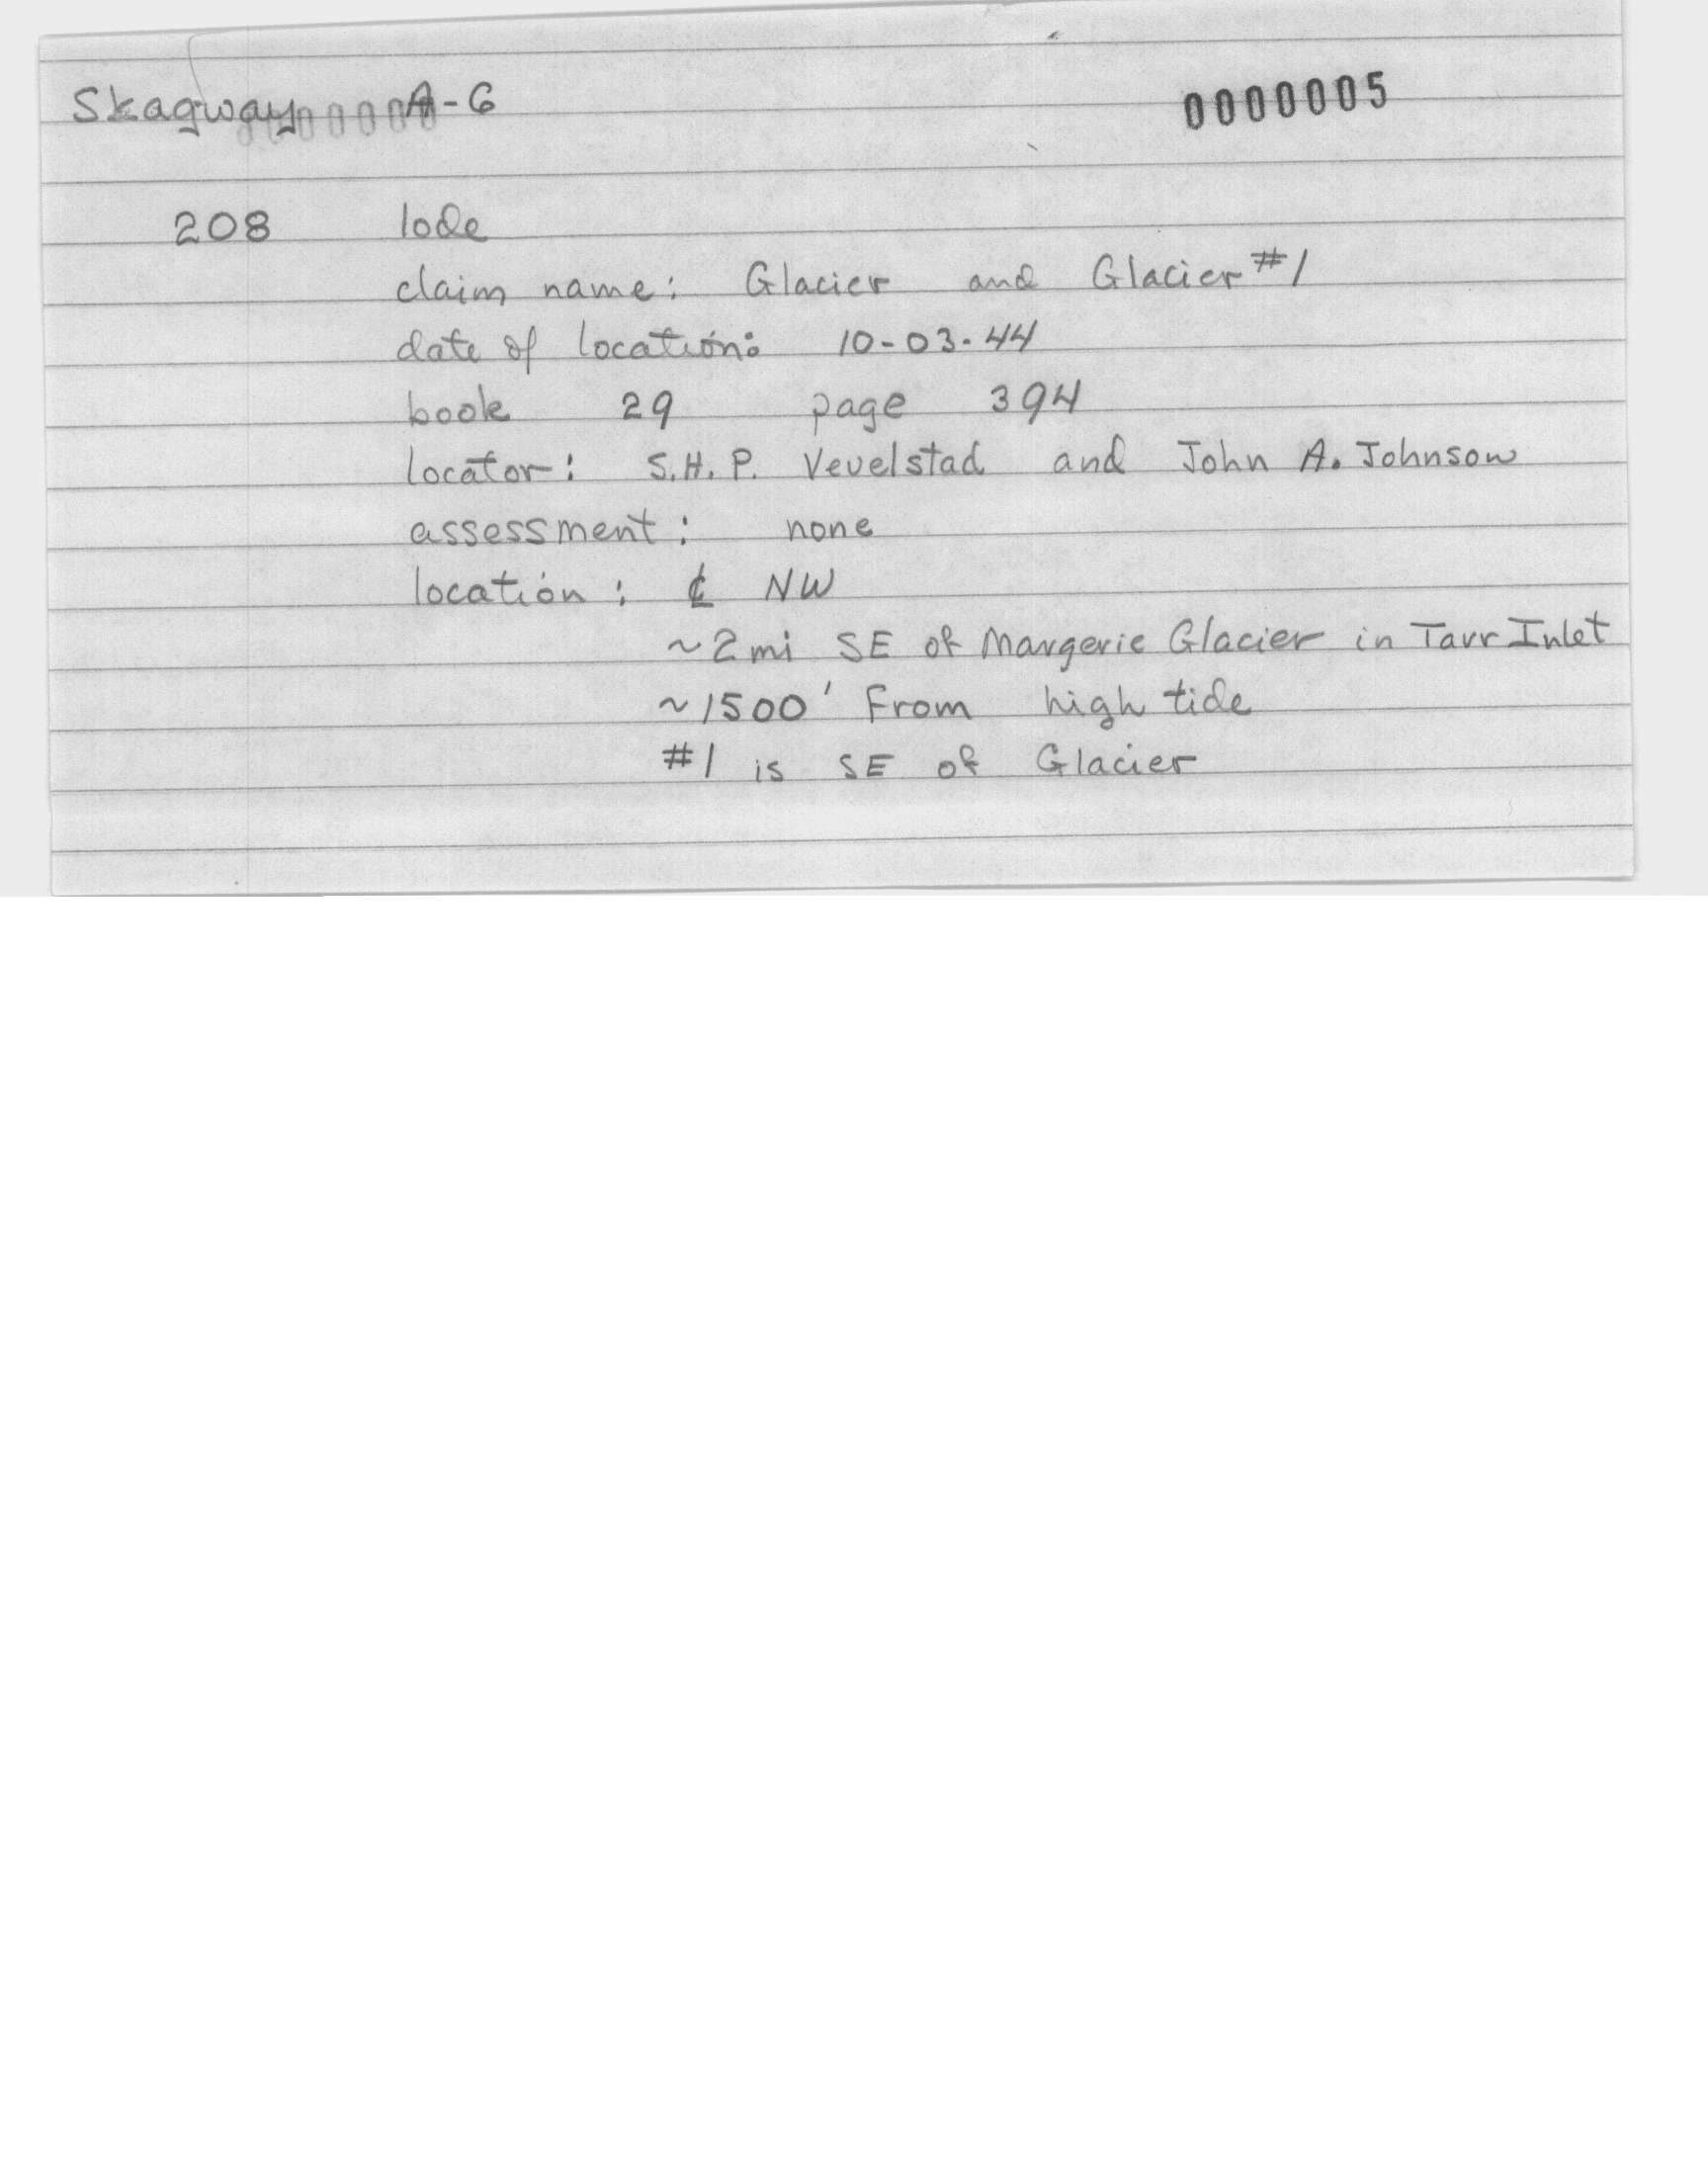 Skagway A-6 0000005
208 lode
claim name: Glacier and Glacier #1
date of location: 10-03-44
book 29 page 394
locator: S.H.P. Vevelstad and John A. Johnson
assessment: none
location: ℄ NW
~2mi SE of Margerie Glacier in Tarr Inlet
~1500' From high tide
#1 is SE of Glacier